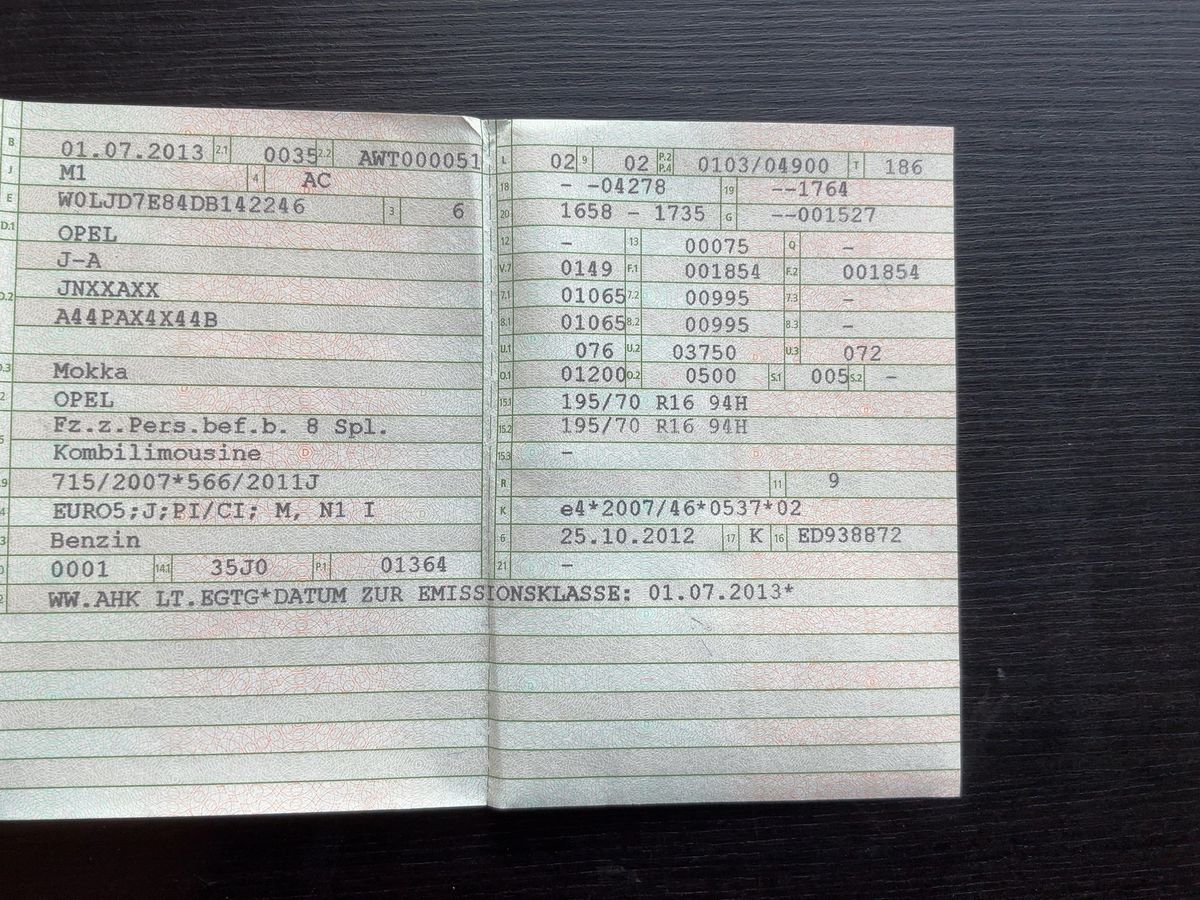 B 01.07.2013 2.1 0035 2.2 AWT000051
J M1 4 AC
E W0LJD7E84DB142246 3 6
D.1 OPEL
J-A
D.2 JNXXAXX
A44PAX4X44B
D.3 Mokka
2 OPEL
5 Fz.z.Pers.bef.b. 8 Spl.
Kombilimousine
V.9 715/2007*566/2011J
14 EURO5;J;PI/CI; M, N1 I
P.3 Benzin
10 0001 14.1 35J0 P.1 01364
22 WW.AHK LT.EGTG*DATUM ZUR EMISSIONSKLASSE: 01.07.2013*
L 02 9 02 P.2 P.4 0103/04900 T 186
18 - -04278 19 --1764
20 1658 - 1735 G --001527
12 - 13 00075 Q -
V.7 0149 F.1 001854 F.2 001854
7.1 01065 7.2 00995 7.3 -
8.1 01065 8.2 00995 8.3 -
U.1 076 U.2 03750 U.3 072
O.1 01200 O.2 0500 S.1 005 S.2 -
15.1 195/70 R16 94H
15.2 195/70 R16 94H
15.3 -
R 11 9
K e4*2007/46*0537*02
6 25.10.2012 17 K 16 ED938872
21 -